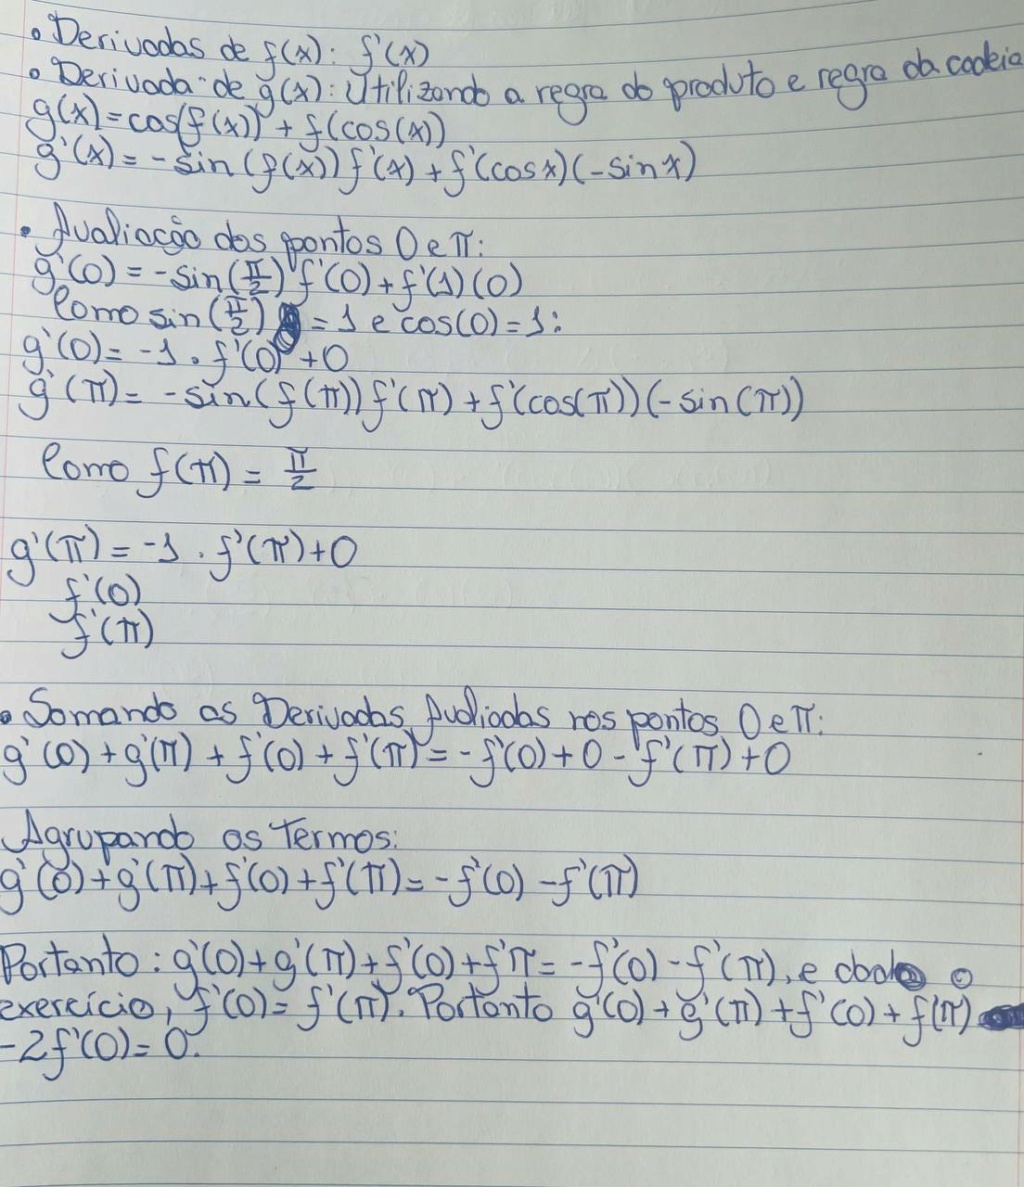 • Derivadas de f(x): f'(x)
• Derivada de g(x): Utilizando a regra do produto e regra da cadeia
g(x)=cos(f(x)) + f(cos(x))
g'(x)= -sin(f(x)) f'(x) + f'(cosx)(-sin x)
• Avaliação dos pontos 0 e π:
g'(0) = -sin(π/2) f'(0) + f'(1)(0)
Como sin(π/2) = 1 e cos(0)=1:
g'(0)= -1 . f'(0) +0
g'(π)= -sin(f(π)) f'(π) + f'(cos(π))(-sin(π))
Como f(π) = π/2
g'(π)= -1 . f'(π)+0
f'(0)
f'(π)
• Somando as Derivadas Avaliadas nos pontos 0 e π:
g'(0)+g'(π)+f'(0)+f'(π)= -f'(0)+0-f'(π)+0
Agrupando os Termos:
g'(0)+g'(π)+f'(0)+f'(π)= -f'(0) -f'(π)
Portanto: g'(0)+g'(π)+f'(0)+f'π= -f'(0)-f'(π), e dado o
exercício, f'(0)= f'(π). Portanto g'(0)+g'(π)+f'(0)+f(π)
-2f'(0)= 0.